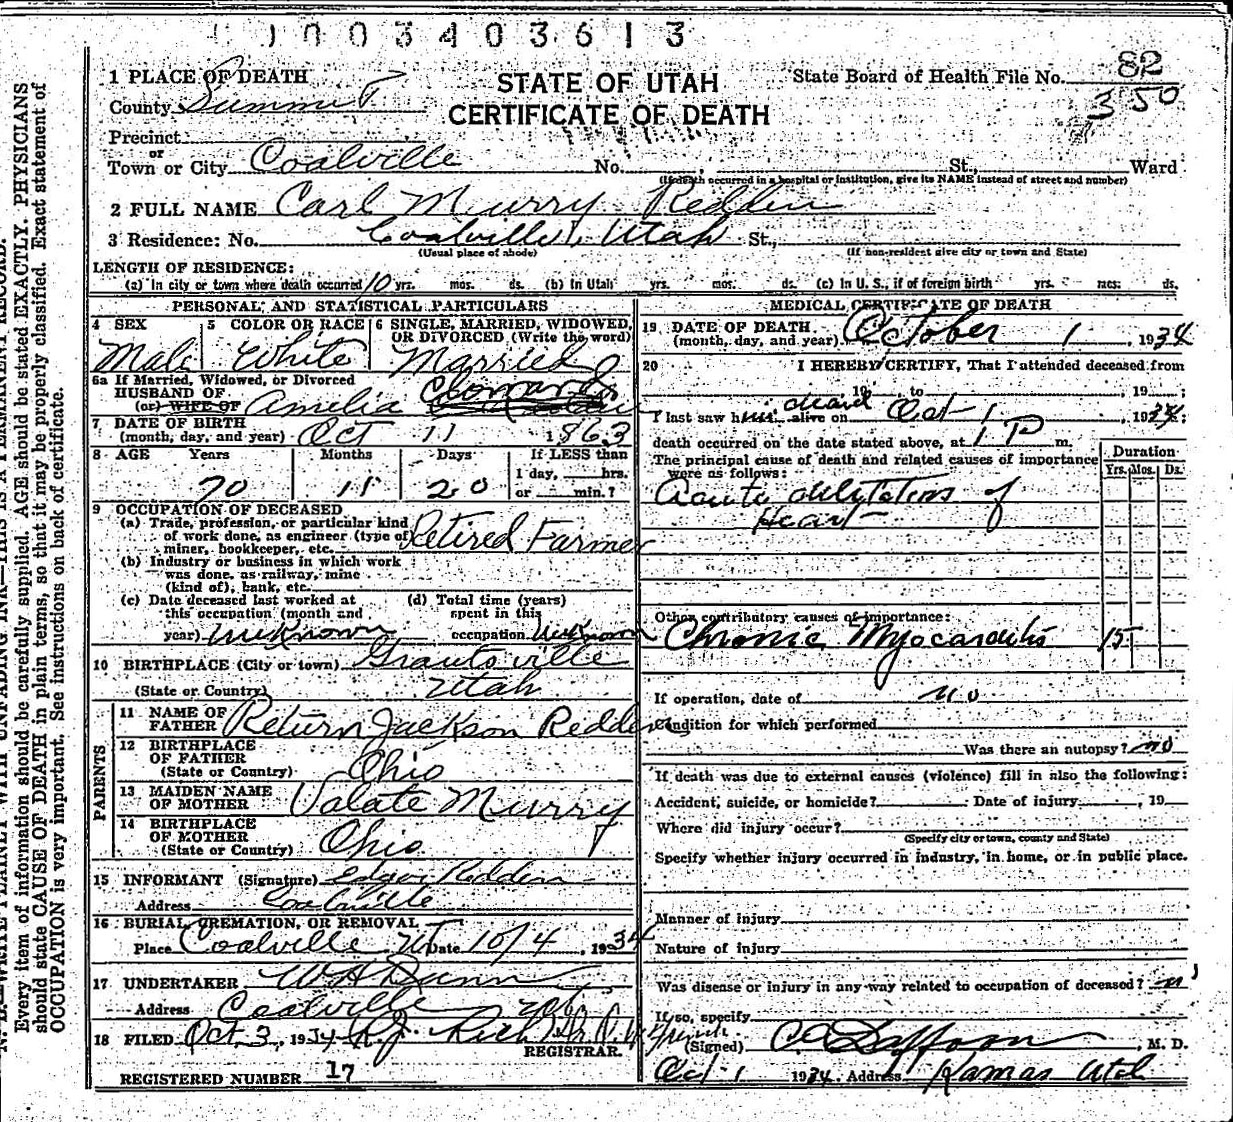 1003403613
STATE OF UTAH
CERTIFICATE OF DEATH
State Board of Health File No. 82
350
1 PLACE OF DEATH
County Summit
Precinct
or
Town or City Coalville No. St., Ward
(If death occurred in a hospital or institution, give its NAME instead of street and number)
2 FULL NAME Carl Murry Reddin
3 Residence: No. Coalville, Utah St.,
(Usual place of abode) (If non-resident give city or town and State)
LENGTH OF RESIDENCE:
(a) In city or town where death occurred 10 yrs. mos. ds. (b) In Utah yrs. mos. ds. (c) In U. S., if of foreign birth yrs. mos. ds.
PERSONAL AND STATISTICAL PARTICULARS
4 SEX 5 COLOR OR RACE 6 SINGLE, MARRIED, WIDOWED,
OR DIVORCED (Write the word)
Male White Married
6a If Married, Widowed, or Divorced
HUSBAND OF
(or) WIFE OF Amelia
7 DATE OF BIRTH
(month, day, and year) Oct 11 1863
8 AGE Years Months Days If LESS than
1 day, hrs.
or min.?
70 11 20
9 OCCUPATION OF DECEASED
(a) Trade, profession, or particular kind
of work done, as engineer (type of
miner, bookkeeper, etc. Retired Farmer
(b) Industry or business in which work
was done, as railway, mine
(kind of), bank, etc.
(c) Date deceased last worked at
this occupation (month and
year) unknown
(d) Total time (years)
spent in this
occupation unknown
10 BIRTHPLACE (City or town) Grantsville
(State or Country) Utah
PARENTS
11 NAME OF
FATHER Return Jackson Redden
12 BIRTHPLACE
OF FATHER
(State or Country) Ohio
13 MAIDEN NAME
OF MOTHER Valate Murry
14 BIRTHPLACE
OF MOTHER
(State or Country) Ohio
15 INFORMANT (Signature) Edgar Reddin
Address Coalville
16 BURIAL, CREMATION, OR REMOVAL
Place Coalville Ut Date 10/4, 1934
17 UNDERTAKER W H Dunn
Address Coalville
18 FILED Oct 3, 1934 R. J. Rich
REGISTRAR.
REGISTERED NUMBER 17
MEDICAL CERTIFICATE OF DEATH
19 DATE OF DEATH
(month, day, and year) October 1, 1934
20 I HEREBY CERTIFY, That I attended deceased from
, 19 to , 19 ;
I last saw him dead alive on Oct 1, 1934;
death occurred on the date stated above, at 1 P m.
The principal cause of death and related causes of importance
were as follows:
Duration
Yrs. Mos. Ds.
Acute dilitation of
Heart
Other contributory causes of importance:
Chronic Myocarditis 15
If operation, date of no
Condition for which performed
Was there an autopsy? no
If death was due to external causes (violence) fill in also the following:
Accident, suicide, or homicide? Date of injury , 19
Where did injury occur?
(Specify city or town, county and State)
Specify whether injury occurred in industry, in home, or in public place.
Manner of injury
Nature of injury
Was disease or injury in any way related to occupation of deceased? no
If so, specify
(Signed) , M. D.
Oct 1 1934. Address Kamas Utah
N. B.—WRITE PLAINLY WITH UNFADING INK—THIS IS A PERMANENT RECORD.
Every item of information should be carefully supplied. AGE should be stated EXACTLY. PHYSICIANS
should state CAUSE OF DEATH in plain terms, so that it may be properly classified. Exact statement of
OCCUPATION is very important. See instructions on back of certificate.